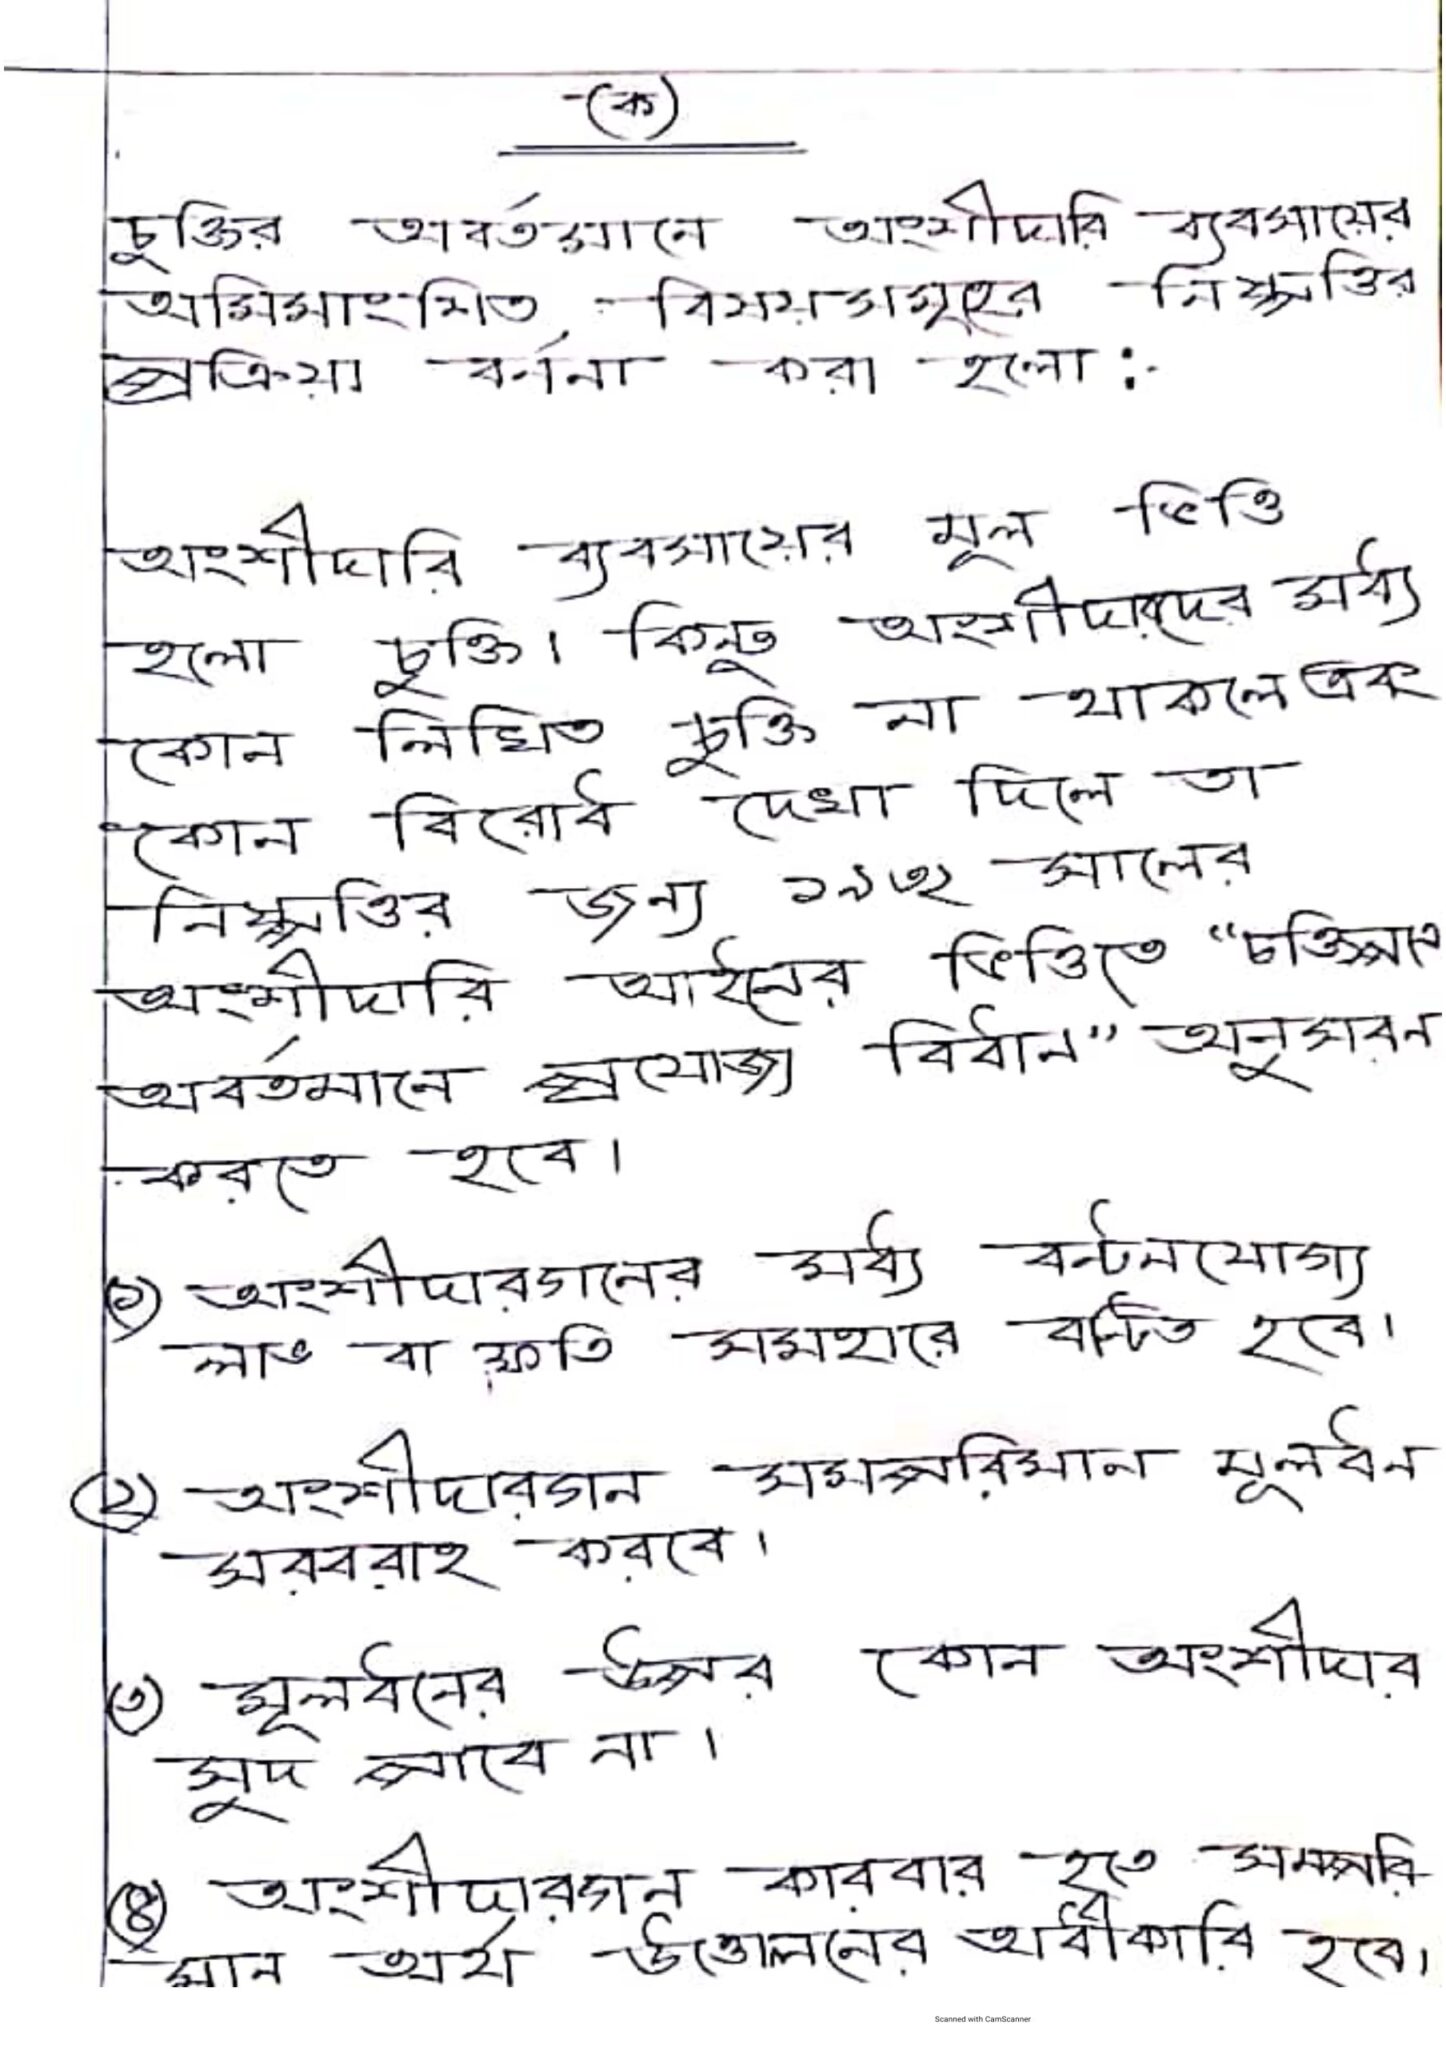 -(ক)
চুক্তির অবর্তমানে অংশীদারি ব্যবসায়ের
অমিমাংশিত বিষয়সমূহের নিষ্পত্তির
প্রক্রিয়া বর্ননা করা হলো :-
অংশীদারি ব্যবসায়ের মূল ভিত্তি
হলো চুক্তি। কিন্তু অংশীদারদের মধ্য
কোন লিখিত চুক্তি না থাকলে এবং
কোন বিরোধ দেখা দিলে তা
নিষ্পত্তির জন্য ১৯৩২ সালের
অংশীদারি আইনের ভিত্তিতে “চক্তিপত্রে
অবর্তমানে প্রযোজ্য বিধান” অনুসরন
করতে হবে।
(১) অংশীদারগনের মধ্য বন্টনযোগ্য
লাভ বা ক্ষতি সমহারে বন্টিত হবে।
(২) অংশীদারগন সমপরিমান মূলধন
সরবরাহ করবে।
(৩) মূলধনের উপর কোন অংশীদার
সুদ পাবে না।
(৪) অংশীদারগন কারবার হতে সমপরি-
মান অর্থ উত্তোলনের অধীকারি হবে।
Scanned with CamScanner